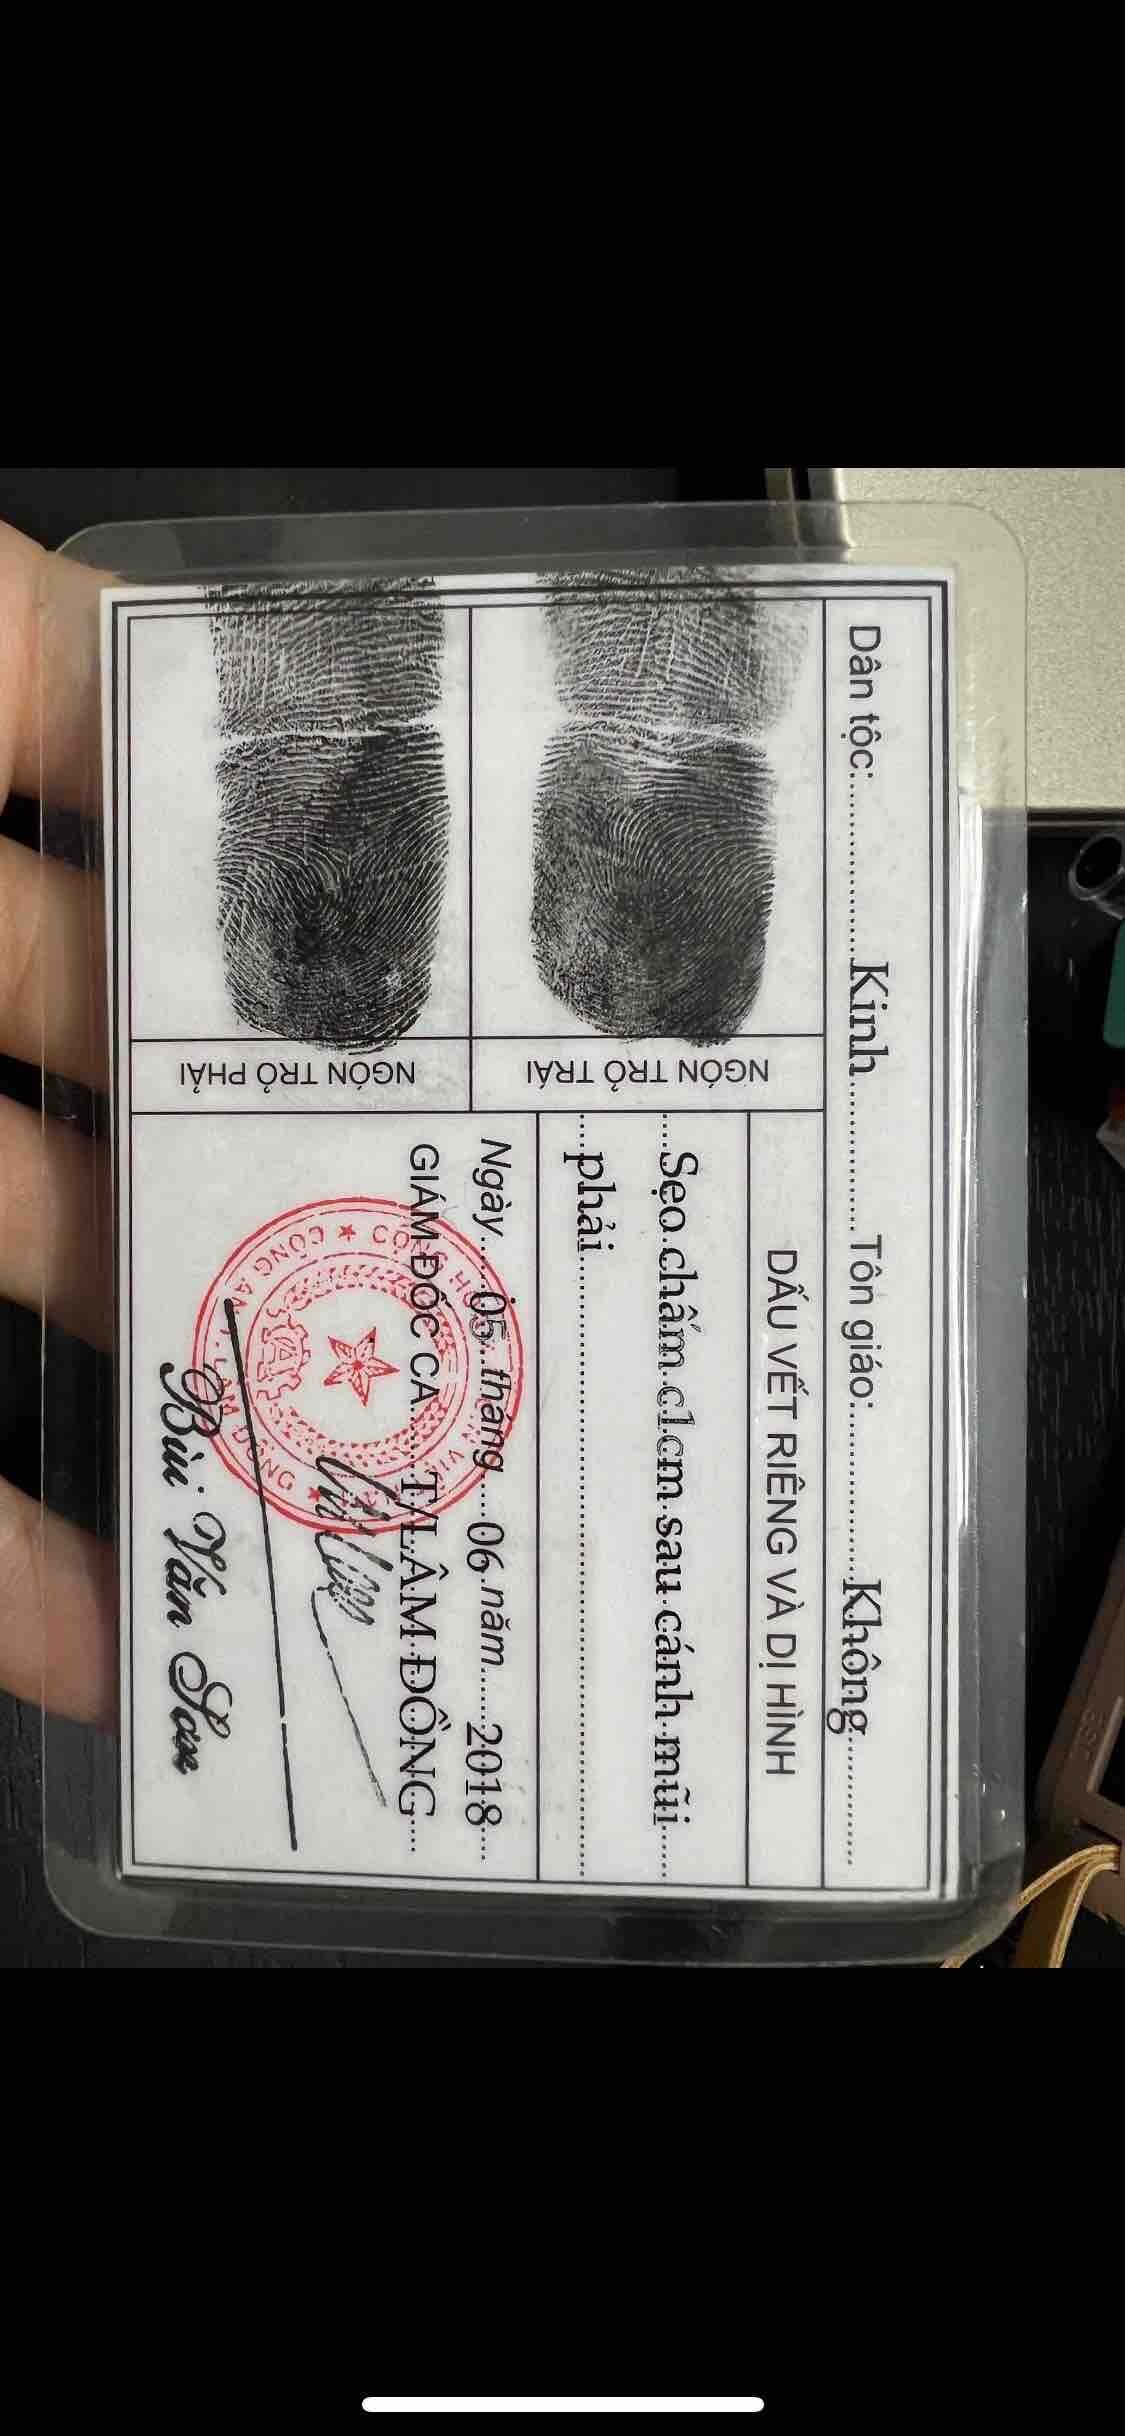 Dân tộc: Kinh Tôn giáo: Không
DẤU VẾT RIÊNG VÀ DỊ HÌNH
Sẹo chấm c1cm sau cánh mũi
phải
Ngày 05 tháng 06 năm 2018
GIÁM ĐỐC CA T/LÂM ĐỒNG
Bùi Văn Sơn
NGÓN TRỎ TRÁI
NGÓN TRỎ PHẢI
CÔNG AN T. LÂM ĐỒNG